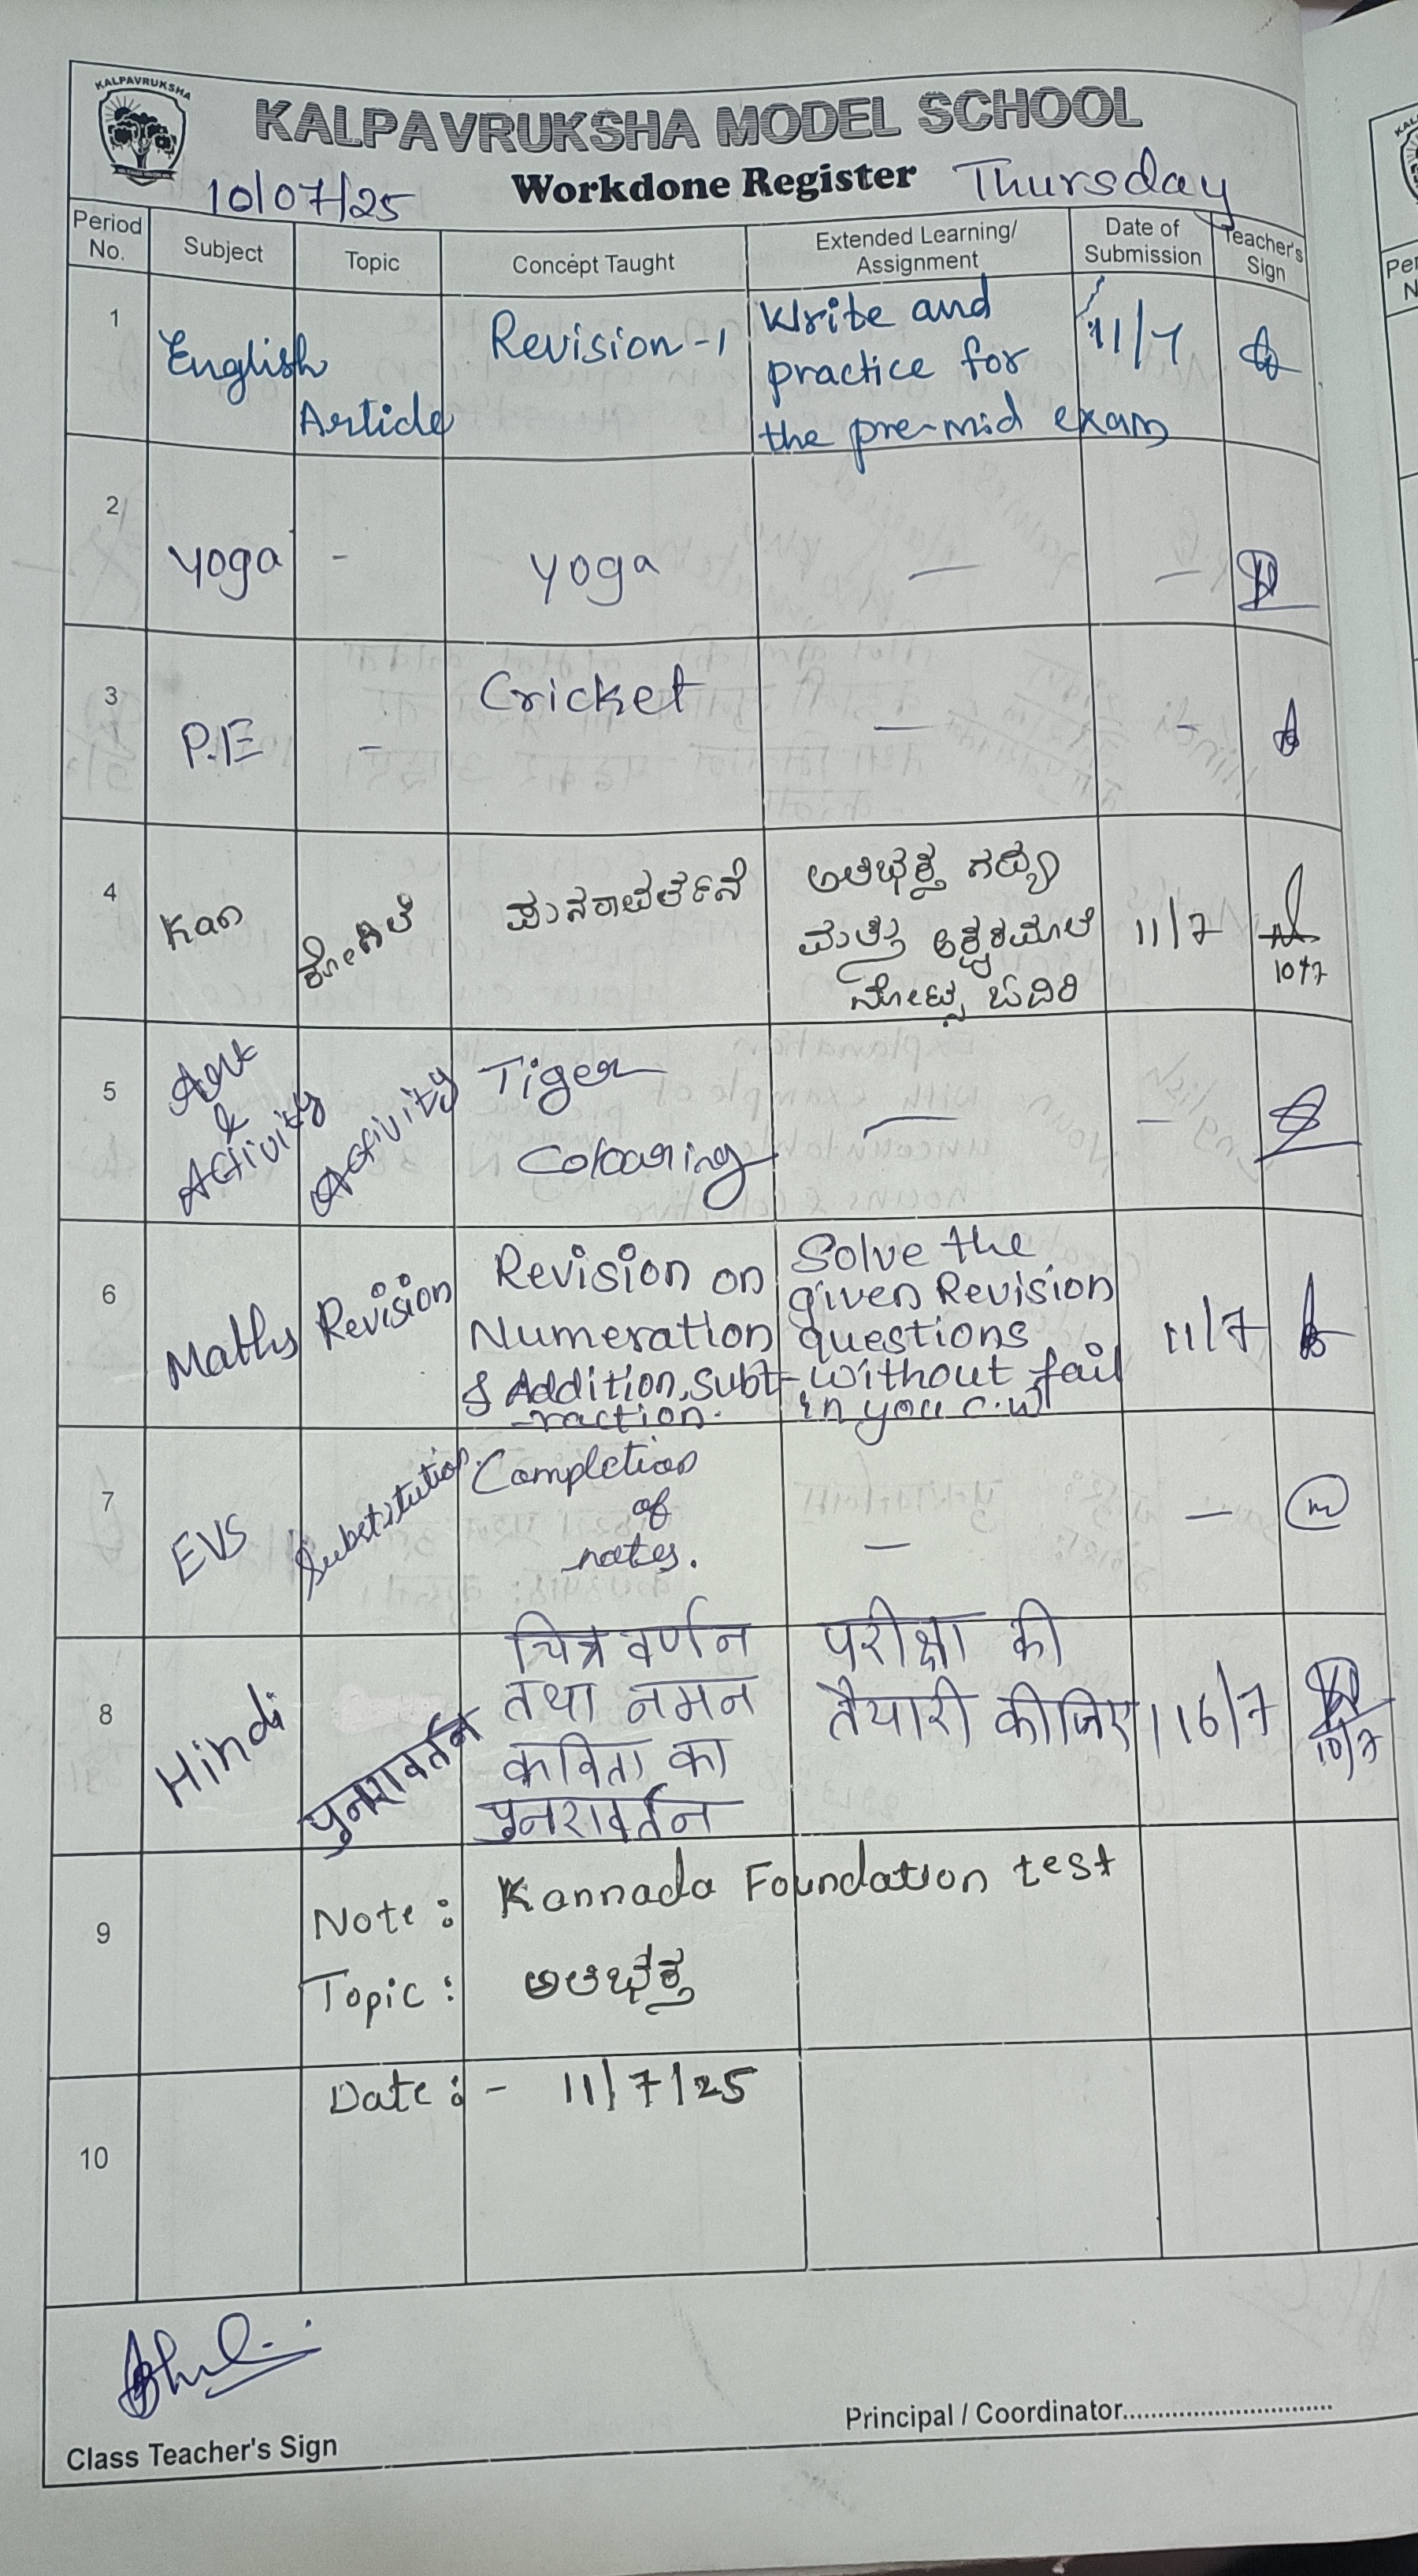 KALPAVRUKSHA
KALPAVRUKSHA MODEL SCHOOL
10/07/25
Workdone Register
Thursday
Period No.
Subject
Topic
Concept Taught
Extended Learning/ Assignment
Date of Submission
Teacher's Sign
1
English
Article
Revision-1
Write and
practice for
the pre-mid exam
11/7
2
Yoga
-
Yoga
—
—
3
P.E
-
Cricket
—
-
4
Kan
ಕೋಗಿಲೆ
ಪುನರಾವರ್ತನೆ
ಅತಿಭಕ್ತ ಗದ್ಯ
ಮತ್ತು ಅಕ್ಷರಮಾಲೆ
ನೋಟ್ಸ ಓದಿರಿ
11/7
10/7
5
Art
&
Activity
Activity
Tiger
Colouring
—
—
6
Maths
Revision
Revision on
Numeration
& Addition, Subt-
-raction.
Solve the
given Revision
questions
without fail
in you c.w
11/7
7
EVS
Substitution.
Completion
of
notes.
—
—
8
Hindi
पुनरावर्तन
चित्र वर्णन
तथा नमन
कविता का
पुनरावर्तन
परीक्षा की
तैयारी कीजिए।
16/7
10/7
9
Note:
Kannada Foundation test
Topic:
ಅತಿಭಕ್ತ
Date: - 11/7/25
10
Class Teacher's Sign
Principal / Coordinator..............................